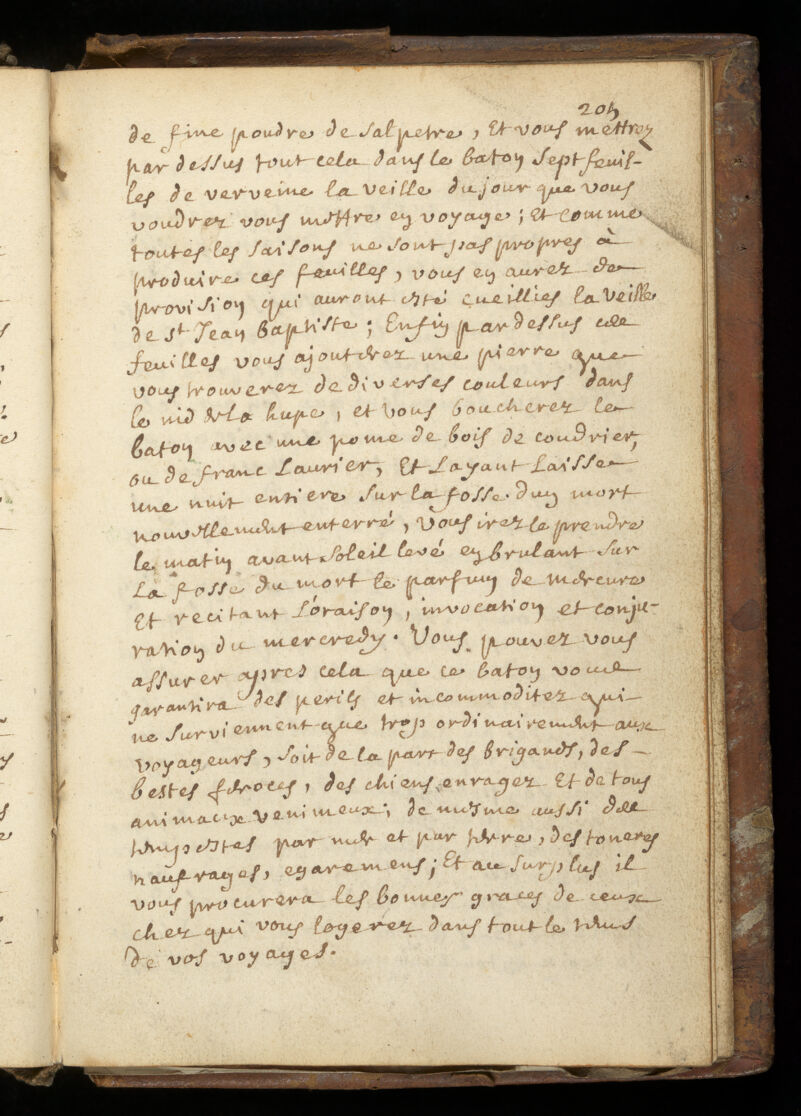 205
de fine poudre de salpetre, Et vous mettrez
par dessus tout cela dans le baton sept feuil-
les de verveine la veille du jour que vous
voudrez vous mettre en voyage; Et comme
toutes les saisons ne sont pas propres à
produire ces feuilles, vous en aurez de
provision qui auront esté cueillies la veille
de st Jean baptiste; Enfin par dessus ces
feuilles vous ajouterez une pierre que
vous trouverez de diverses couleurs dans
le nid de la hupe, et vous boucherez le
baton avec une pome de bois de coudrier,
ou de franc Laurier, Et Layant Laisse
une nuit entiere sur la fosse dun mort
nouvellement enterré, Vous irez le prendre
le matin avant soleil levé en brulant sur
La fosse du mort le parfum de mercure
Et recitant L'oraison, invocation et conju-
ration du mercredy. Vous pouvez vous
assurer apres cela que ce baton vous
garantira des perils et incommoditez qui
ne surviennent que trop ordinairement aux
voyageurs, soit de la part des brigands, des
bestes feroces, des chiens enragez Et de tous
animaux venimeux; de mesme aussi des
tempestes par mer et par terre, des toneres
naufrages, egaremens; Et au surplus il
vous procurera les bonnes graces de ceux
chez qui vous logerez dans tout le tems
de vos voyages.